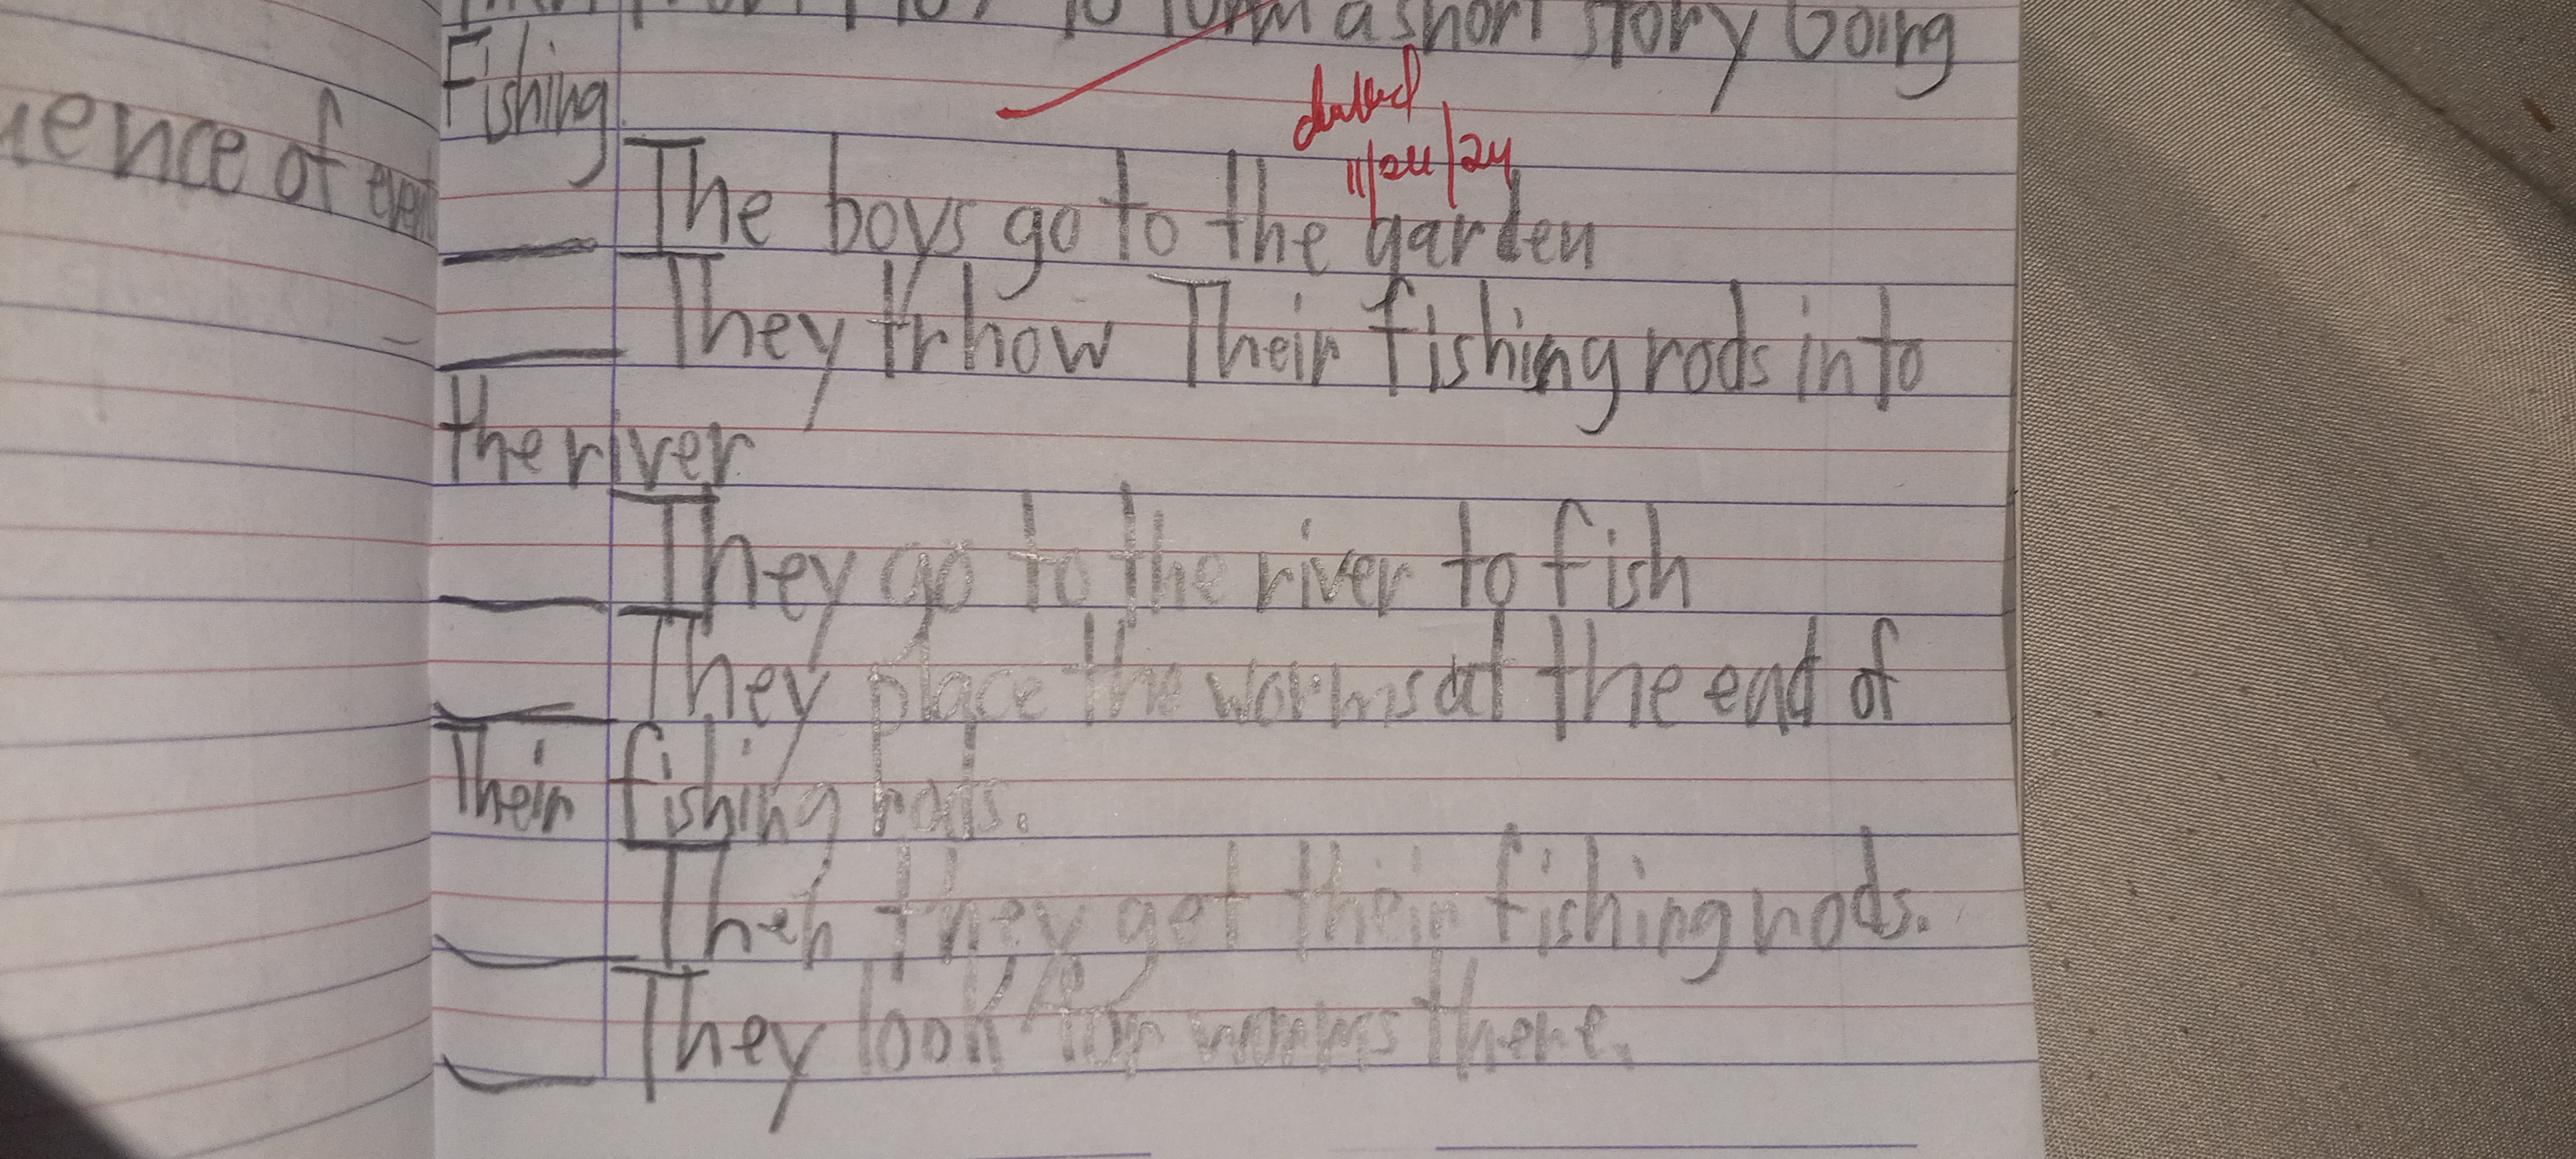 to form a short story Going
Fishing
uence of event
11/24/24
The boys go to the garden
They trhow Their fishing rods into
the river
They go to the river to fish
They place the worms at the end of
Their fishing rods.
Then they get their fishing rods.
They look for worms there.